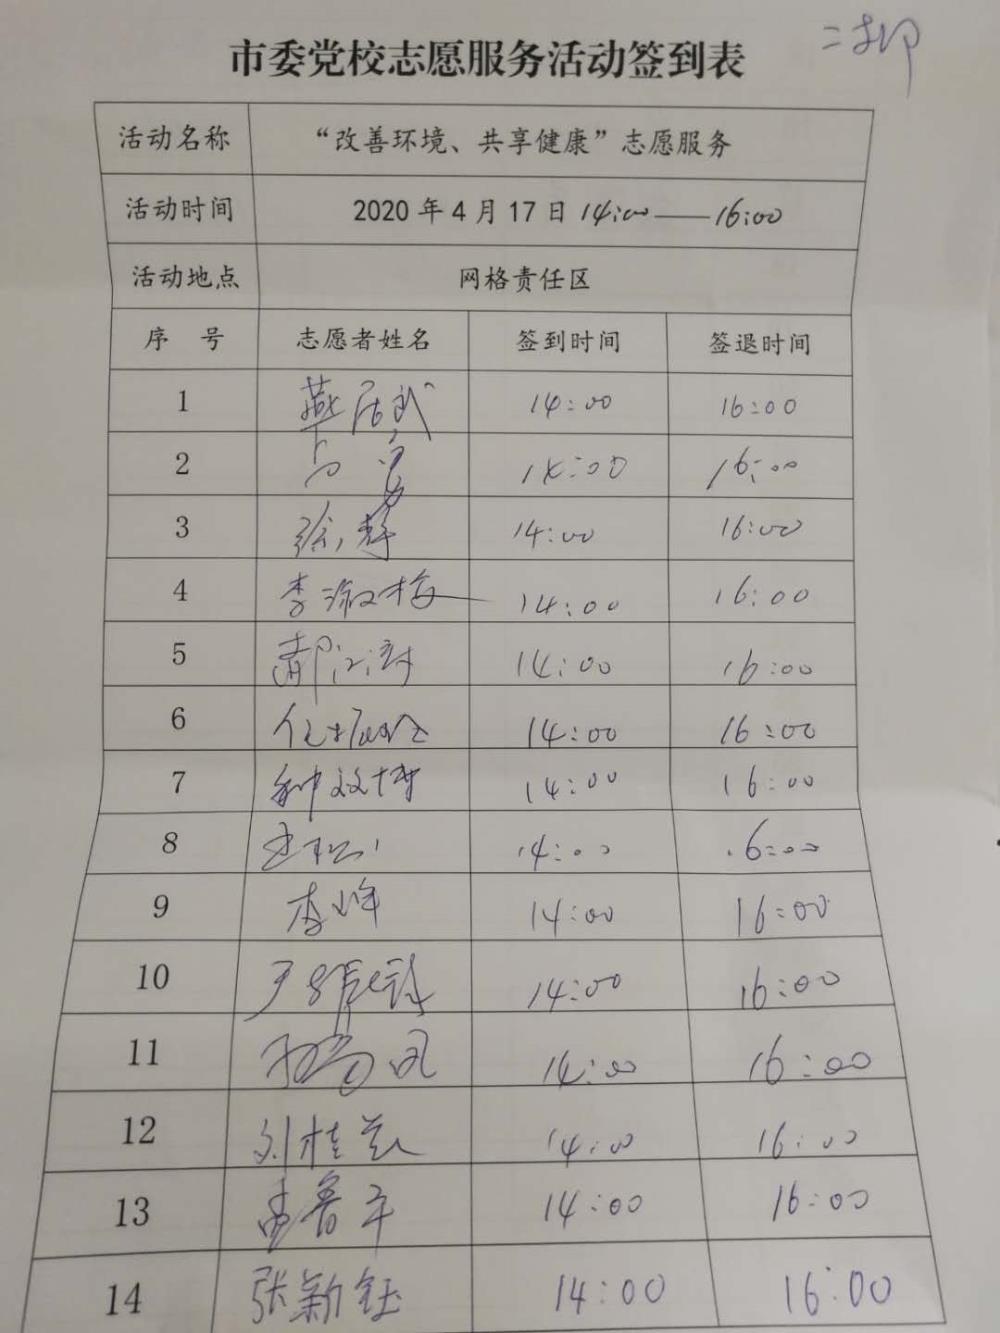 市委党校志愿服务活动签到表
活动名称 “改善环境、共享健康”志愿服务
活动时间 2020 年 4 月 17 日 14:00——16:00
活动地点 网格责任区
序 号 志愿者姓名 签到时间 签退时间
1 14:00 16:00
2 14:00 16:00
3 徐静 14:00 16:00
4 李淑梅 14:00 16:00
5 14:00 16:00
6 14:00 16:00
7 14:00 16:00
8 14:00 16:00
9 李峰 14:00 16:00
10 14:00 16:00
11 14:00 16:00
12 刘桂兰 14:00 16:00
13 14:00 16:00
14 张新钰 14:00 16:00